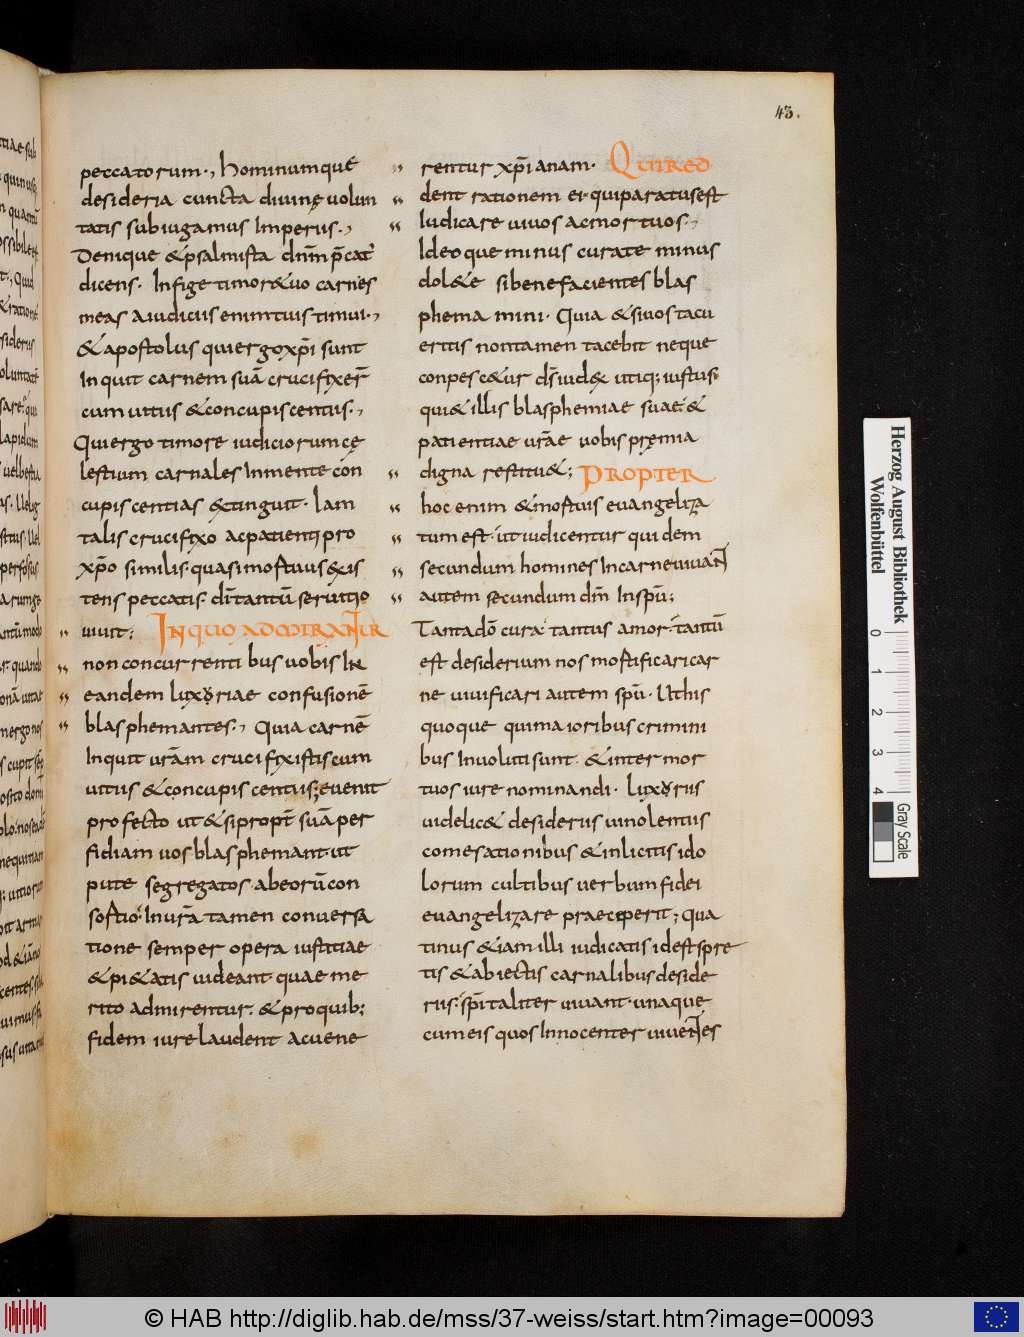 43.
peccatorum., hominumque
desideria cuncta divinę volun
tatis subiugamus Imperiis.,
Denique & psalmista dn̄m p̄cat᷒
dicens. Infige timore tuo carnes
meas a iudiciis enim tuis timui.,
& apostolus qui ergo xp̄i sunt
Inquit carnem suā crucifixer̄
cum uitiis & concupiscentiis.,
Qui ergo timore iudiciorum cę
lestium carnales In mente con
cupiscentias &tinguit. Iam
talis crucifixo ac patienti pro
xp̄o similis. quasi mortuus &xis
tens peccatis. dī tantū seruitio
uiuit; IN QUO ADMIRANTUR
non concurrentibus uobis IN
eandem luxoriae confusionē
blasphemantes., Quia carnē
Inquit ur̄am crucifixistis cum
uitiis & concupiscentiis; euenit
profecto ut & si propt̄ suā per
fidiam uos blasphemant. ut
pute segregatos ab eorū con
sortio. In ur̄a tamen conuersa
tione semper opera iustitiae
& pi&atis uideant quae me
rito admirentur. & pro quib;
fidem iure laudent ac uene
rentur xp̄ianam. Qui red
dent rationem ei. qui paratus est
Iudicare uiuos ac mortuos.,
Ideoque minus curate minus
dol&e si benefacientes blas
phemamini. Quia & si uos tacu
eritis non tamen tacebit neque
conpesc&ur d̄s iud& utiq; iustus.
qui & illis blasphemiae suae. &
patientiae ur̄ae uobis pręmia
digna restitu&; PROPTER
hoc enim & mortuis euangeliza
tum est. ut iudicentur quidem
secundum homines In carne uiuant
autem secundum dm̄ In spū;
Tanta dō cura. tantus amor. tantū
est desiderium nos mortificari car
ne uiuificari autem spū. Ut his
quoque qui maioribus crimini
bus Inuoluti sunt. & inter mor
tuos iure nominandi. luxoriis
uidelic& desideriis uinolentiis
comesationibus & inlicitis ido
lorum cultibus uerbum fidei
euangelizare praeceperit; qua
tinus & iam illi iudicatis id est spre
tis & abiectis carnalibus deside
riis. sp̄italiter uiuant. unaque
cum eis quos Innocenter uiuentes
Herzog August Bibliothek
Wolfenbüttel
0 1 2 3 4
Gray Scale
© HAB http://diglib.hab.de/mss/37-weiss/start.htm?image=00093